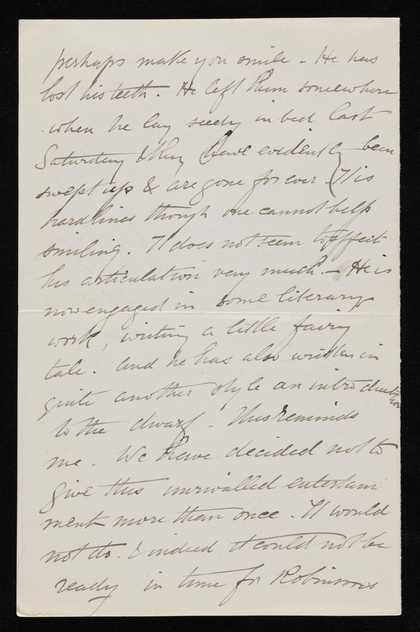 perhaps make you smile - He has
lost his teeth. He left them somewhere
when he lay seedy in bed last
Saturday & they have evidently been
swept up & are gone for ever. (It is
hard lines though one cannot help
smiling. It does not seem to affect
his articulation very much. - He is
now engaged in some literary
work, writing a little fairy
tale. And he has also written in
quite another style an introduction
to the dwarf. This reminds
me. We have decided not to
give this unrivalled entertain
ment more than once. It would
not do. & indeed it could not be
ready in time for Robinsons